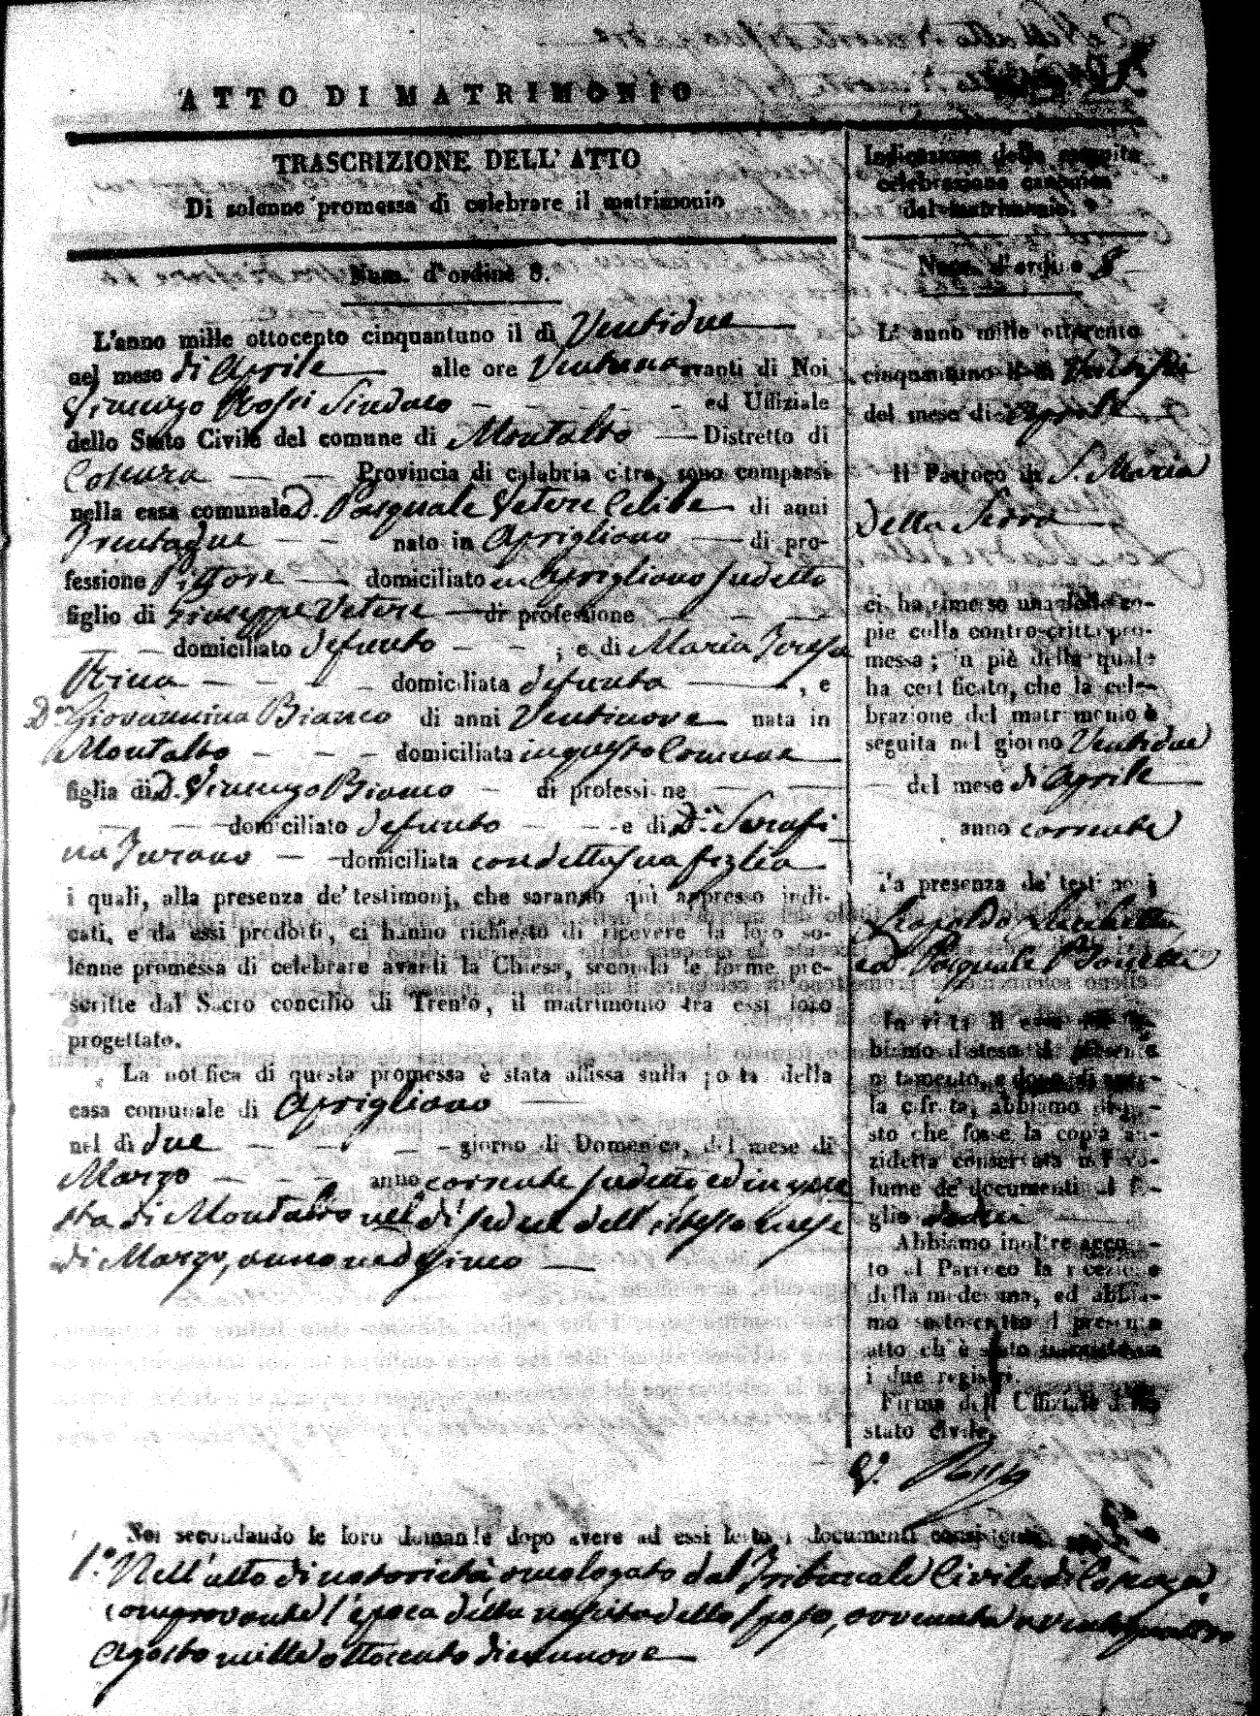 ATTO DI MATRIMONIO
TRASCRIZIONE DELL' ATTO
Di solenne promessa di celebrare il matrimonio
Num. d'ordine 8.
L'anno mille ottocento cinquantuno il dì Ventidue
nel mese di Aprile alle ore Ventuno avanti di Noi
Vincenzo Rossi Sindaco ed Uffiziale
dello Stato Civile del comune di Montalto Distretto di
Cosenza Provincia di calabria citra, sono comparsi
nella casa comunale D. Pasquale Vetere Celibe di anni
Trentadue nato in Aprigliano di pro-
fessione Pittore domiciliato in Aprigliano sudetto
figlio di Giuseppe Vetere di professione
domiciliato defunto ; e di Maria Teresa
domiciliata defunta , e
D.a Giovannina Bianco di anni Ventinove nata in
Montalto domiciliata in questo Comune
figlia di D. Vincenzo Bianco di professi ne
domiciliato defunto e di D.a Serafi
na Turano domiciliata con detta sua figlia
i quali, alla presenza de' testimonj, che saranno qui appresso indi-
cati, e da essi prodotti, ci hanno richiesto di ricevere la loro so-
lenne promessa di celebrare avanti la Chiesa, secondo le forme pre-
scritte dal Sacro concilio di Trento, il matrimonio tra essi loro
progettato.
La notifica di questa promessa è stata affissa sulla porta della
casa comunale di Aprigliano
nel dì due giorno di Domenica, del mese di
Marzo anno corrente sudetto ed in que
sta di Montalto nel dì sedici dell' istesso mese
di Marzo, anno medesimo
Indicazione della seguita
celebrazione canonica
del matrimonio.
Num. d'ordine 8
L' anno mille ottocento
cinquantuno il dì
del mese di Aprile
Il Parroco di S. Maria
Della Serra
ci ha rimesso una delle co-
pie della controscritta pro-
messa; in piè della quale
ha certificato, che la cele-
brazione del matrimonio è
seguita nel giorno Ventidue
del mese di Aprile
anno corrente
Alla presenza de' testimonj
Leopoldo
e D. Pasquale
In vista di essa noi ab-
biamo disteso il presente
notamento, e dopo di aver-
la cifrata, abbiamo dispo-
sto che fosse la copia an-
zidetta conservata nel vo-
lume de' documenti al fo-
glio
Abbiamo inoltre accusa-
to al Parroco la ricezione
della medesima, ed abbia-
mo sottoscritto il presente
atto ch' è stato inscritto su
i due registri.
Firma dell' Uffiziale dello
stato civile.
V. Rossi
Noi secondando le loro domande dopo avere ad essi letto i documenti consistenti
1.o Nell' atto di notorietà omologato dal Tribunale Civile di Cosenza
comprovante l'epoca della nascita dello sposo, avvenuta a ventiquattro
Agosto mille ottocento diecinnove